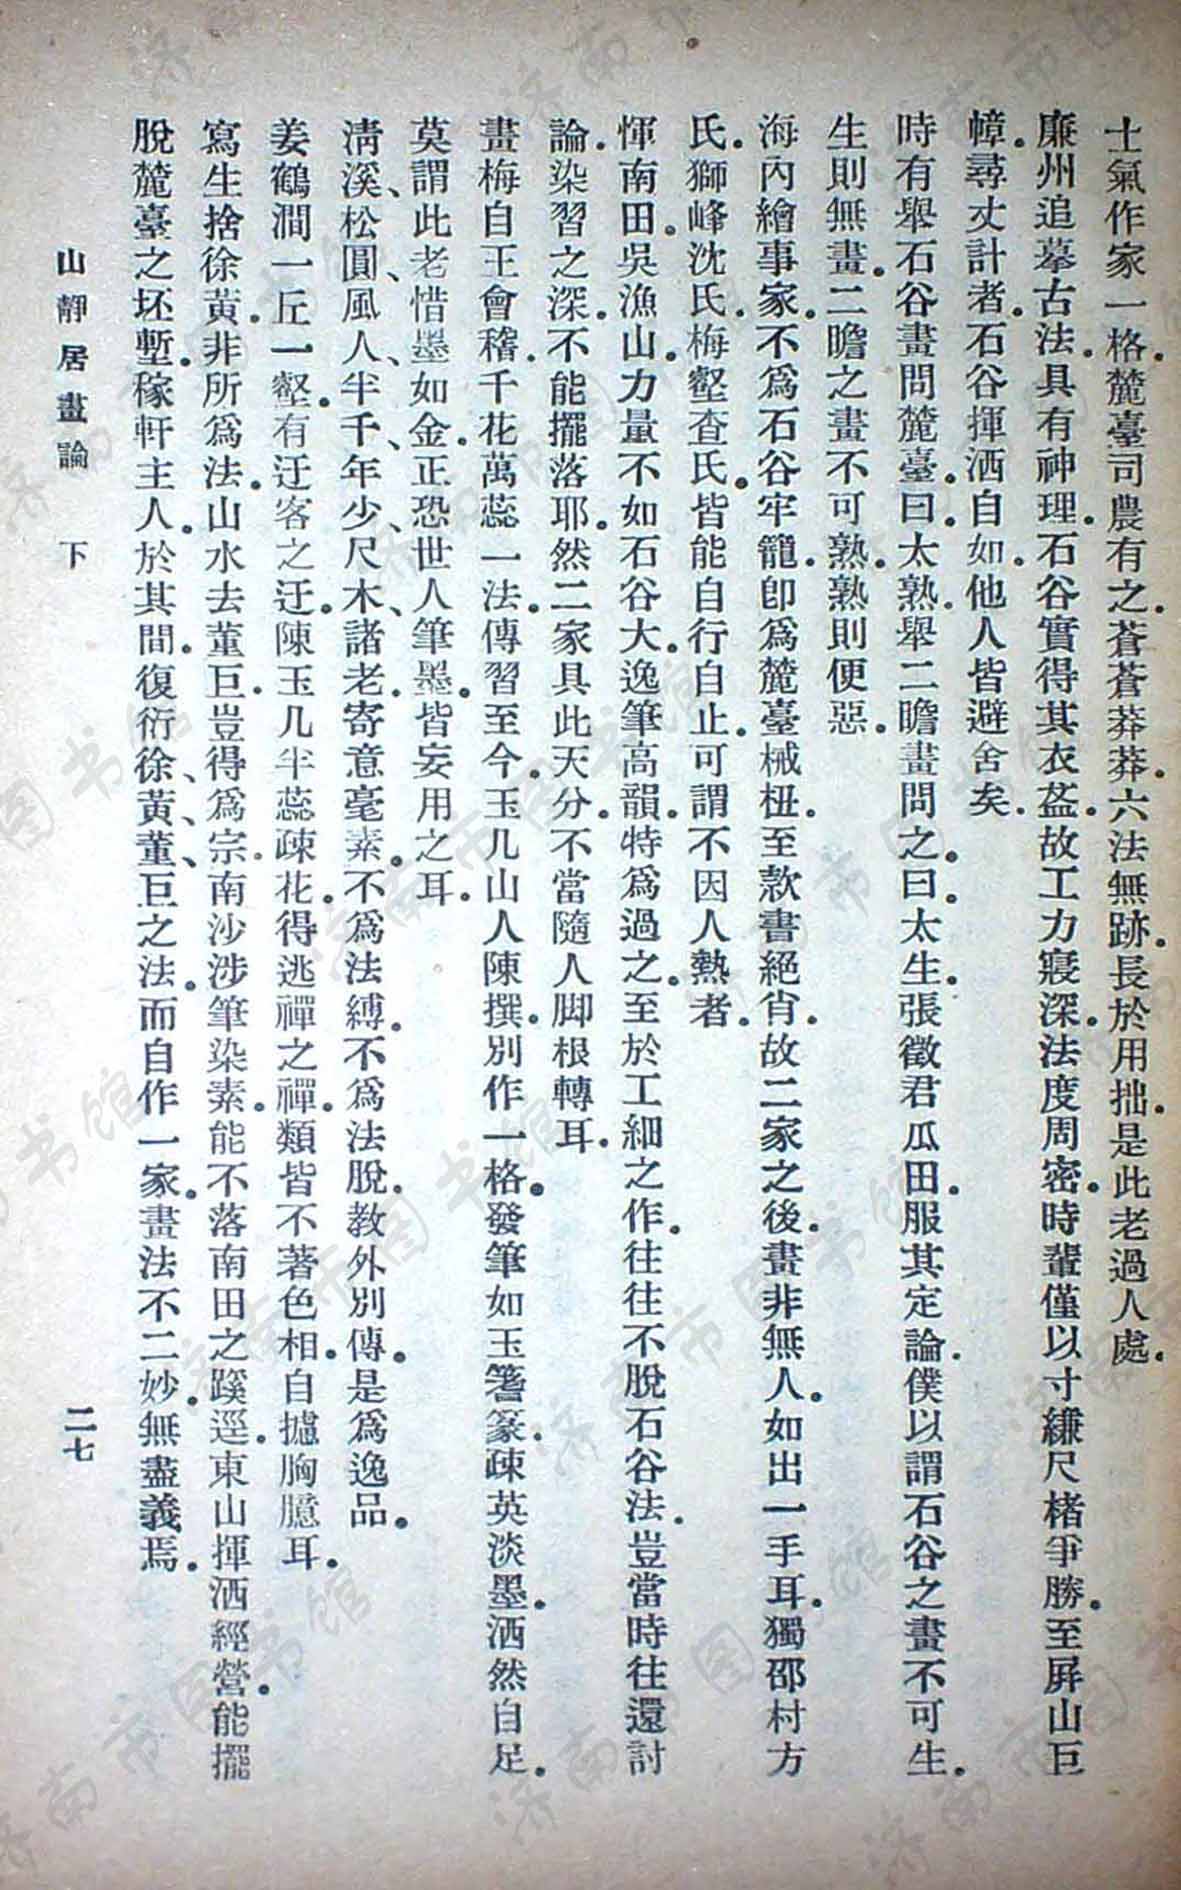 士氣作家一格。麓臺司農有之。蒼蒼莽莽。六法無跡。長於用拙。是此老過人處。
廉州追摹古法。具有神理。石谷實得其衣盋。故工力寖深。法度周密。時輩僅以寸縑尺楮爭勝。至屛山巨
幛。尋丈計者。石谷揮洒自如。他人皆避舍矣。
時有舉石谷畫問麓臺。曰。太熟。舉二瞻畫問之。曰。太生。張徵君瓜田。服其定論。僕以謂石谷之畫不可生。
生則無畫。二瞻之畫不可熟。熟則便惡。
海內繪事家。不爲石谷牢籠。卽爲麓臺械杻。至欵書絕肖。故二家之後。畫非無人。如出一手耳。獨邵村方
氏。獅峰沈氏。梅壑查氏。皆能自行自止。可謂不因人熱者。
惲南田。吳漁山。力量不如石谷大。逸筆高韻。特爲過之。至於工細之作。往往不脫石谷法。豈當時往還討
論。染習之深。不能擺落耶。然二家具此天分。不當隨人脚根轉耳。
畫梅自王會稽。千花萬蕊一法。傳習至今。玉几山人陳撰。別作一格。發筆如玉箸篆。疎英淡墨。洒然自足。
莫謂此老惜墨如金。正恐世人筆墨。皆妄用之耳。
淸溪、松圓、風人、半千、年少、尺木、諸老。寄意毫素。不爲法縛。不爲法脫。教外別傳。是爲逸品。
姜鶴澗一丘一壑。有迂客之迂。陳玉几半蕊疎花。得逃禪之禪。類皆不著色相。自攄胸臆耳。
寫生捨徐黃。非所爲法。山水去董巨。豈得爲宗。南沙涉筆染素。能不落南田之蹊逕。東山揮洒經營。能擺
脫麓臺之坯塹。稼軒主人。於其間。復衍徐、黃、董、巨之法。而自作一家。畫法不二妙。無盡義焉。
山靜居畫論 下 二七